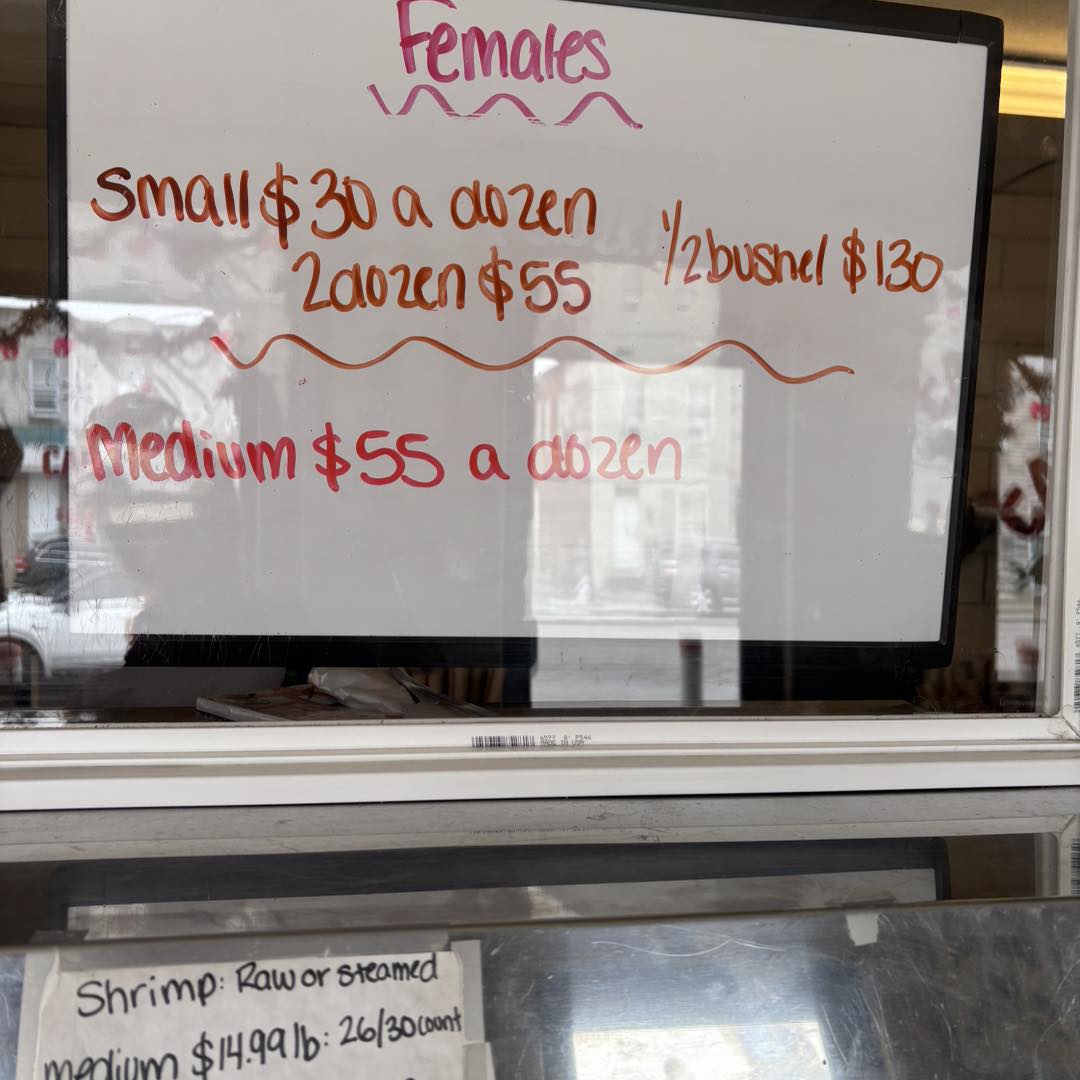 Females
Small $30 a dozen
2 dozen $55
1/2 bushel $130
Medium $55 a dozen
MADE IN USA
Shrimp: Raw or steamed
medium $14.99 lb: 26/30 count